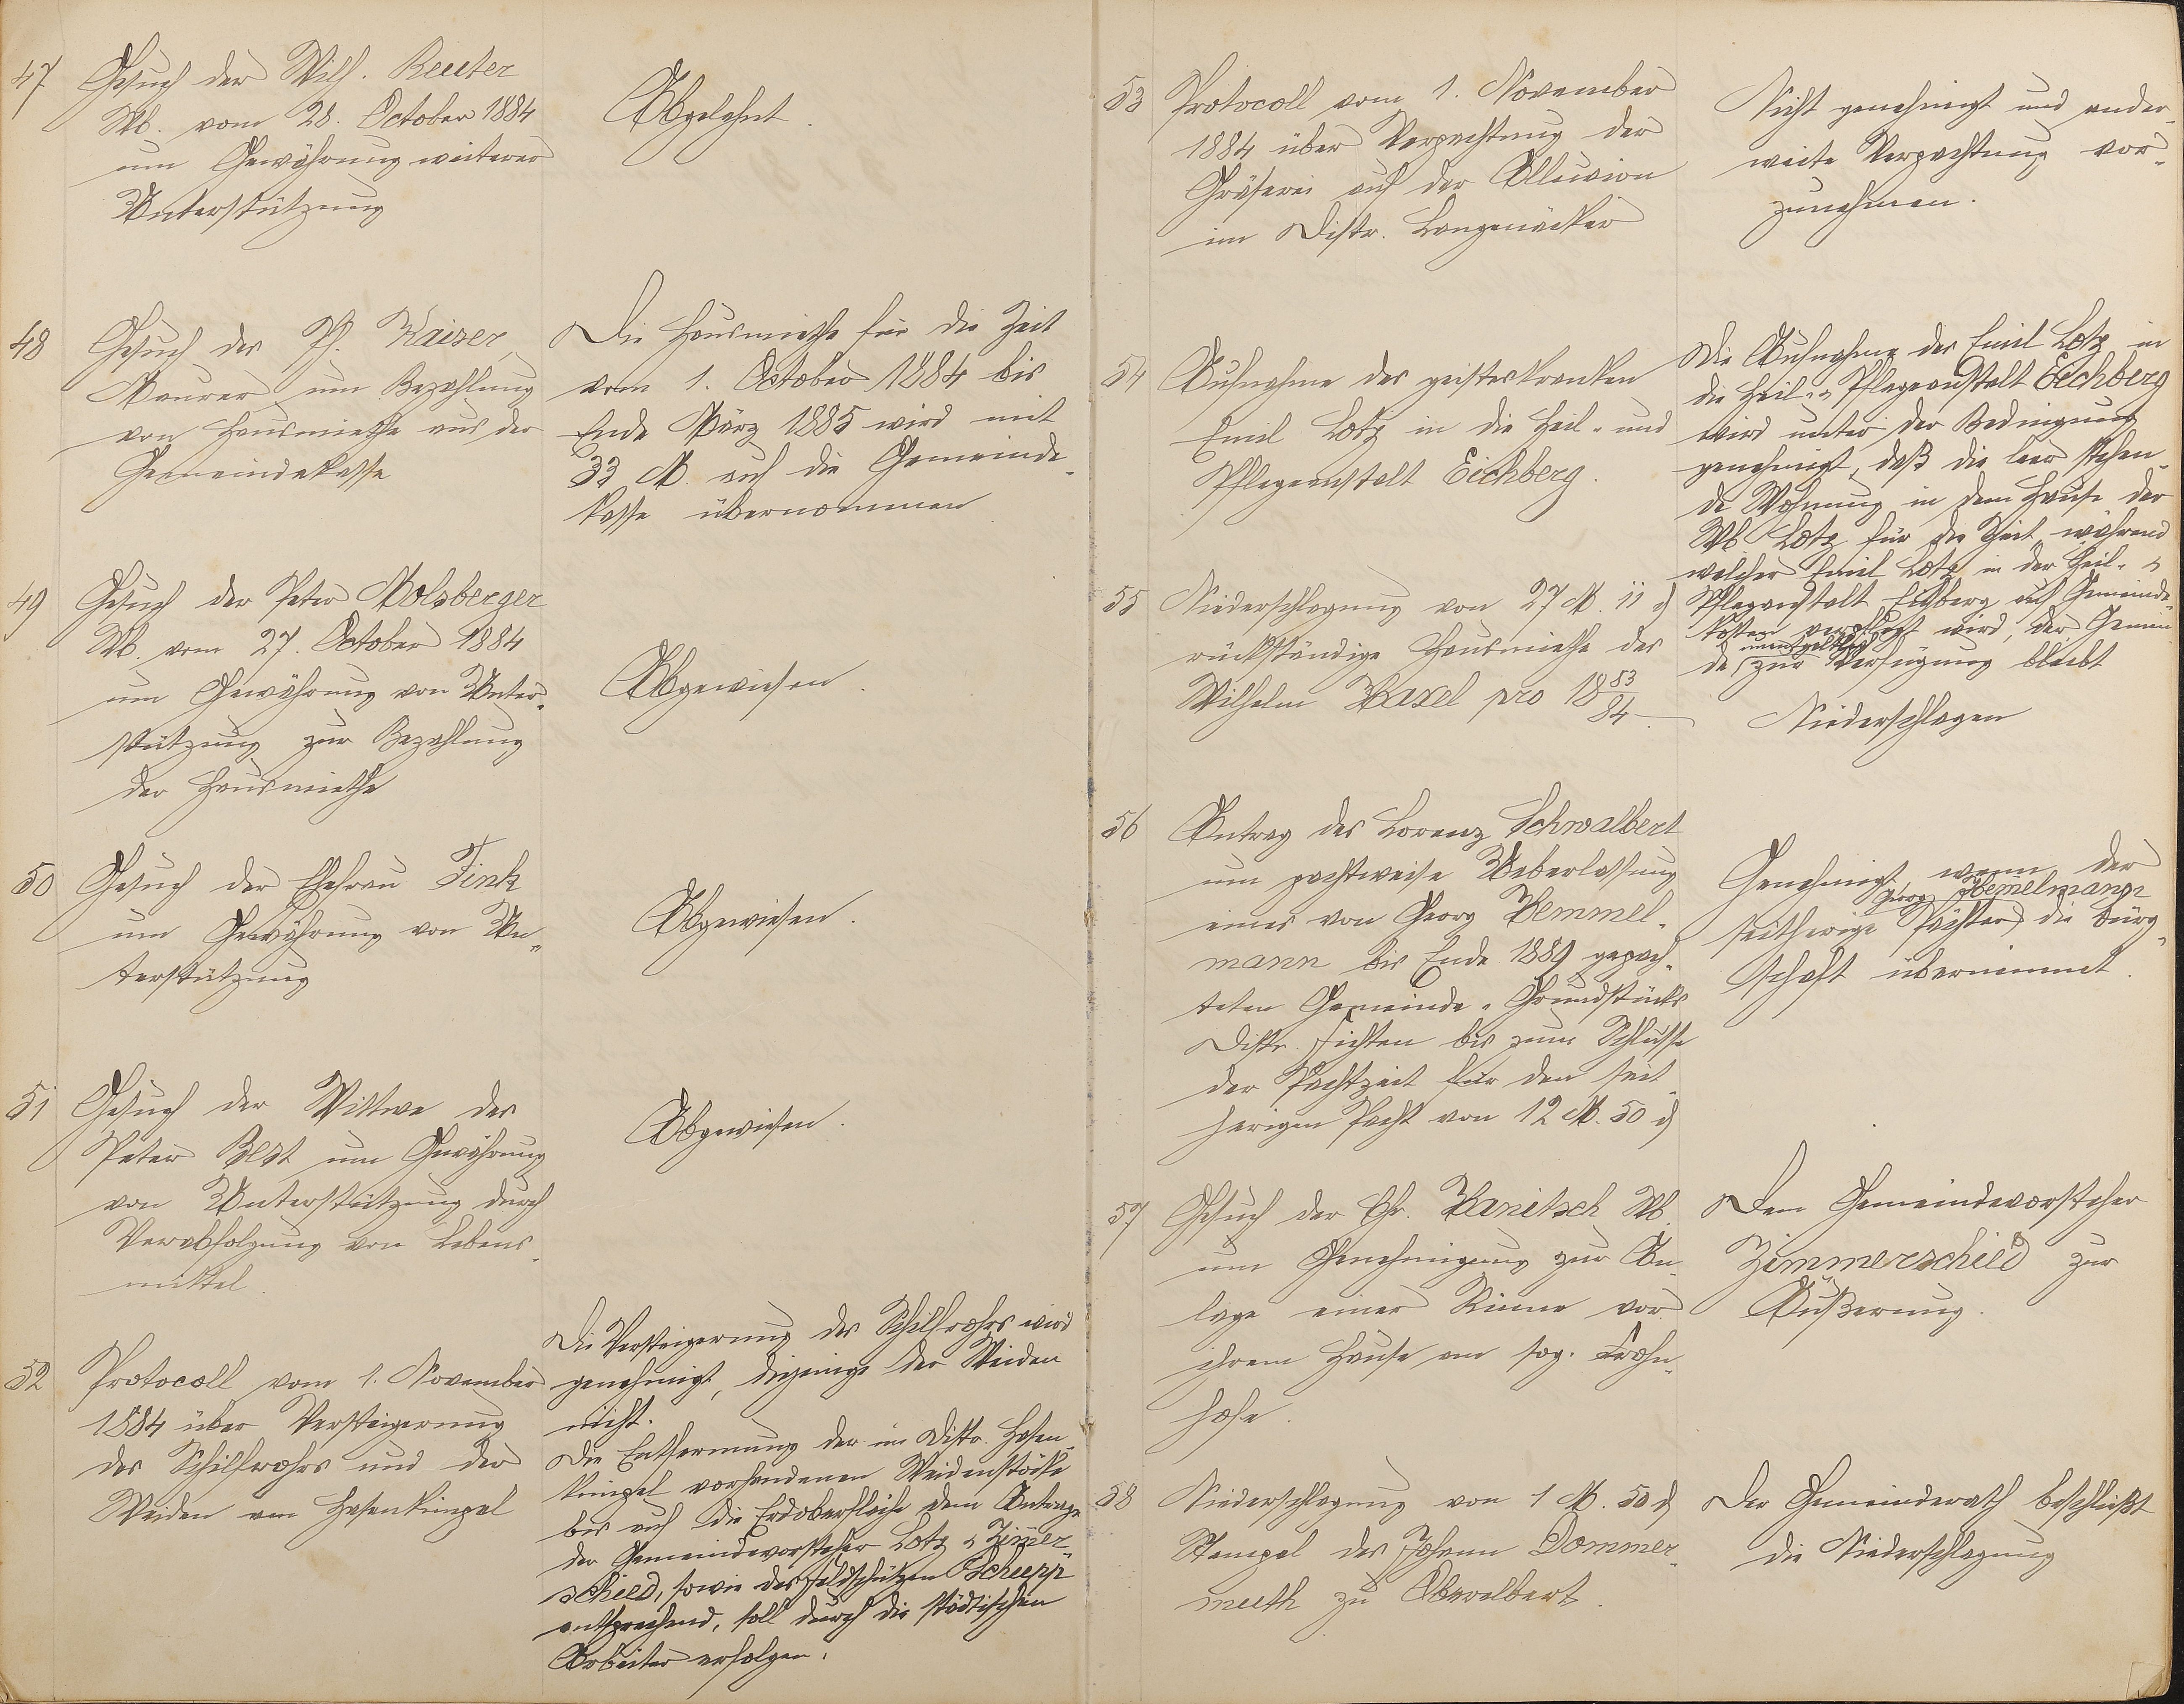 47
Gesuch der Wilh. Reuter
Wb. vom 28. October 1884
um Gewährung weiterer
Unterstützung
Abgelehnt.
48
Gesuch des Ph. Kaiser,
Maurer um Bezahlung
von Hausmiethe aus der
Gemeindekasse
Die Hausmiethe für die Zeit
vom 1. October 1884 bis
Ende März 1885 wird mit
33 M. auf die Gemeinde-
kasse übernommen
49
Gesuch der Peter Molsberger
Wb. vom 27. October 1884
um Gewährung von Unter-
stützung zur Bezahlung
der Hausmiethe
Abgewiesen.
50
Gesuch der Ehefrau Fink
um Gewährung von Un-
terstützung
Abgewiesen.
51
Gesuch der Wittwe des
Peter Best um Gewährung
von Unterstützung durch
Verabfolgung von Lebens-
mittel.
Abgewiesen.
52
Protocoll vom 1. November
1884 über Versteigerung
des Schilfrohrs und der
Weiden am Hasenkümpel
Die Versteigerung des Schilfrohrs wird
genehmigt, diejenige der Weiden
nicht.
Die Entfernung der im Distr. Hasen-
kümpel vorhandenen Weidenstöcke
bis auf die Erdoberfläche dem Antrage
der Gemeindevorsteher Lotz & Zimer-
schied, sowie des Feldschützen Schupp
entsprechend, soll durch die städtischen
Arbeiter erfolgen.
53
Protocoll vom 1. November
1884 über Verpachtung der
Gräserei auf der Alluvion
im Distr. Langenäcker
Nicht genehmigt und ander-
weite Verpachtung vor-
zunehmen.
54
Aufnahme des geisteskranken
Emil Lotz in die Heil- und
Pflegeanstalt Eichberg.
Die Aufnahme des Emil Lotz in
die Heil- & Pflegeanstalt Eichberg
wird unter der Bedingung
genehmigt, daß die leer stehen-
de Wohnung in dem Hause der
Wb Lotz für die Zeit, während
welcher Emil Lotz in der Heil- &
Pflegeanstalt Eichberg auf Gemeinde-
kosten verpflegt wird, der Gemein
de unentgeltlich zur Verfügung bleibt
55
Niederschlagung von 27 M. 11 d
rückständige Hausmiethe des
Wilhelm Hasel pro 18 83/84.
Niederschlagen
56
Antrag des Lorenz Schwalbert
um pachtweise Ueberlassung
eines von Georg Hemmel-
mann bis Ende 1889 gepach-
teten Gemeinde-Grundstücks
Distr. Fichten bis zum Schlusse
der Pachtzeit für den seit-
herigen Pacht von 12 M. 50 d
Genehmigt, wenn der
seitherige Pächter Georg Hemelmann die Bürg-
schaft übernimmt.
57
Gesuch der Chr. Hanitsch Wb.
um Genehmigung zur An-
lage einer Rinne vor
ihrem Hause am sog. Frohn-
hofe.
Dem Gemeindevorsteher
Zimmerschied zur
Äußerung.
58
Niederschlagung von 1 M. 50 d
Stempel des Johann Dommer-
muth zu Oberelbert.
Der Gemeinderath beschließt
die Niederschlagung